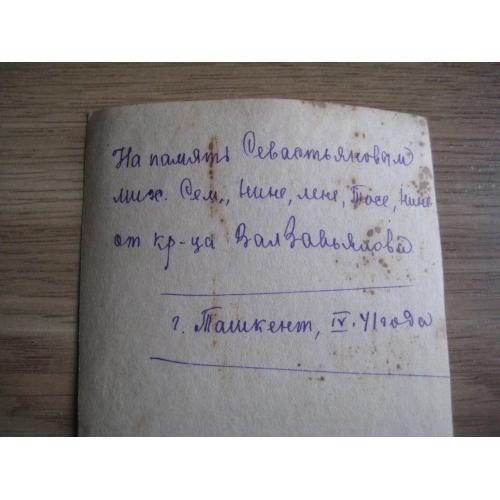 На память Севастьяновым
мих. Сем., Нине, лене, Тосе, Нине
от кр-ца Вал Завьялова
г. Ташкент, IV.41 года